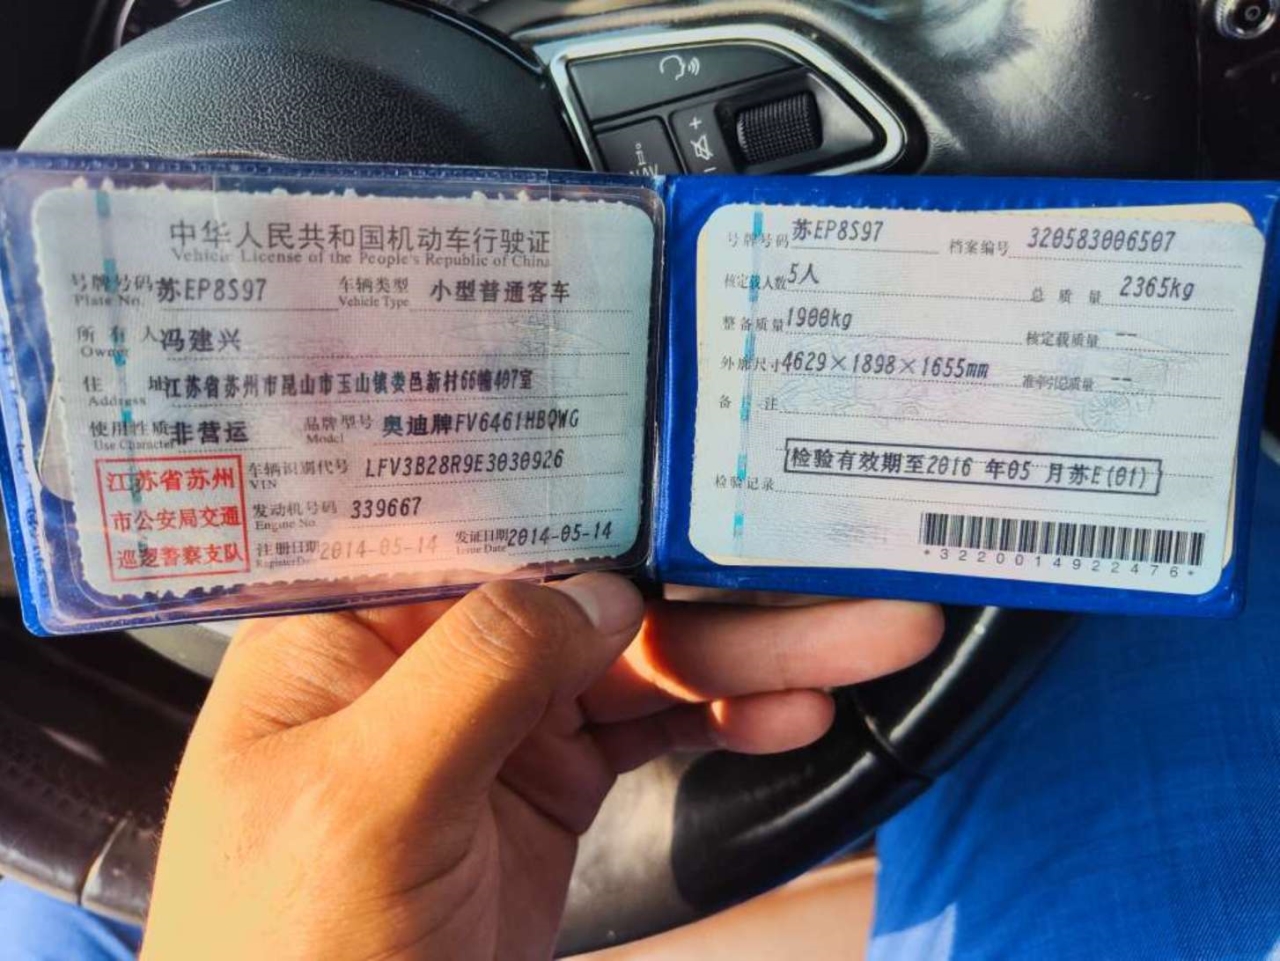 中华人民共和国机动车行驶证
Vehicle License of the People's Republic of China
号牌号码 苏EP8S97 车辆类型 小型普通客车
Plate No. Vehicle Type
所有人 冯建兴
Owner
住址 江苏省苏州市昆山市玉山镇娄邑新村66幢407室
Address
使用性质 非营运 品牌型号 奥迪牌FV6461HBQWG
Use Character Model
江苏省苏州
市公安局交通
巡逻警察支队
车辆识别代号 LFV3B28R9E3030926
VIN
发动机号码 339667
Engine No.
注册日期 2014-05-14 发证日期 2014-05-14
Register Date Issue Date
号牌号码 苏EP8S97 档案编号 320583006507
核定载人数 5人 总质量 2365kg
整备质量 1900kg 核定载质量 --
外廓尺寸 4629×1898×1655mm 准牵引总质量 --
备注
检验有效期至2016 年05 月苏E(01)
检验记录
*3220014922476*
NAV
+
-